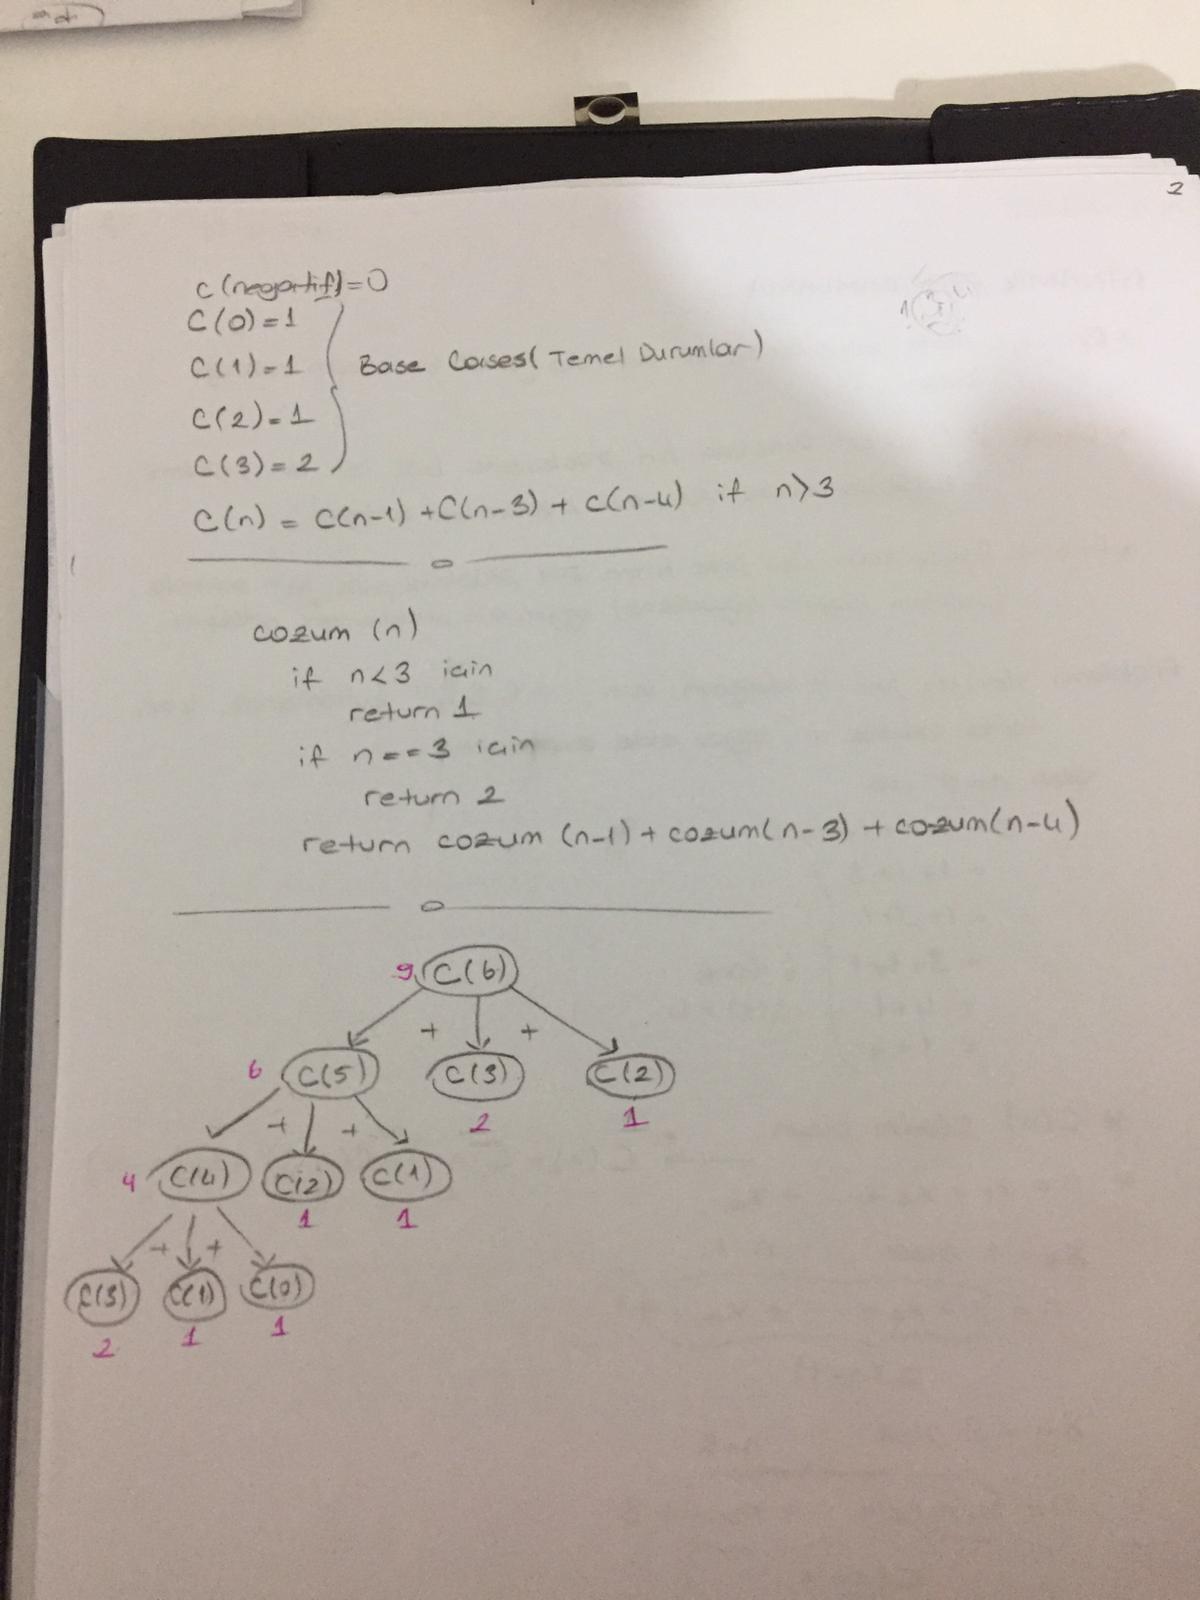 2
C(negatif)=0
C(0)=1
C(1)=1
Base Cases(Temel Durumlar)
C(2)=1
C(3)=2
C(n) = C(n-1) + C(n-3) + C(n-4) if n>3
cozum (n)
if n<3 için
return 1
if n==3 için
return 2
return cozum (n-1) + cozum(n-3) + cozum(n-4)
9 C(6)
+ +
6 C(5) C(3) C(2)
2 1
+ +
4 C(4) C(2) C(1)
1 1
+ +
C(3) C(1) C(0)
2 1 1